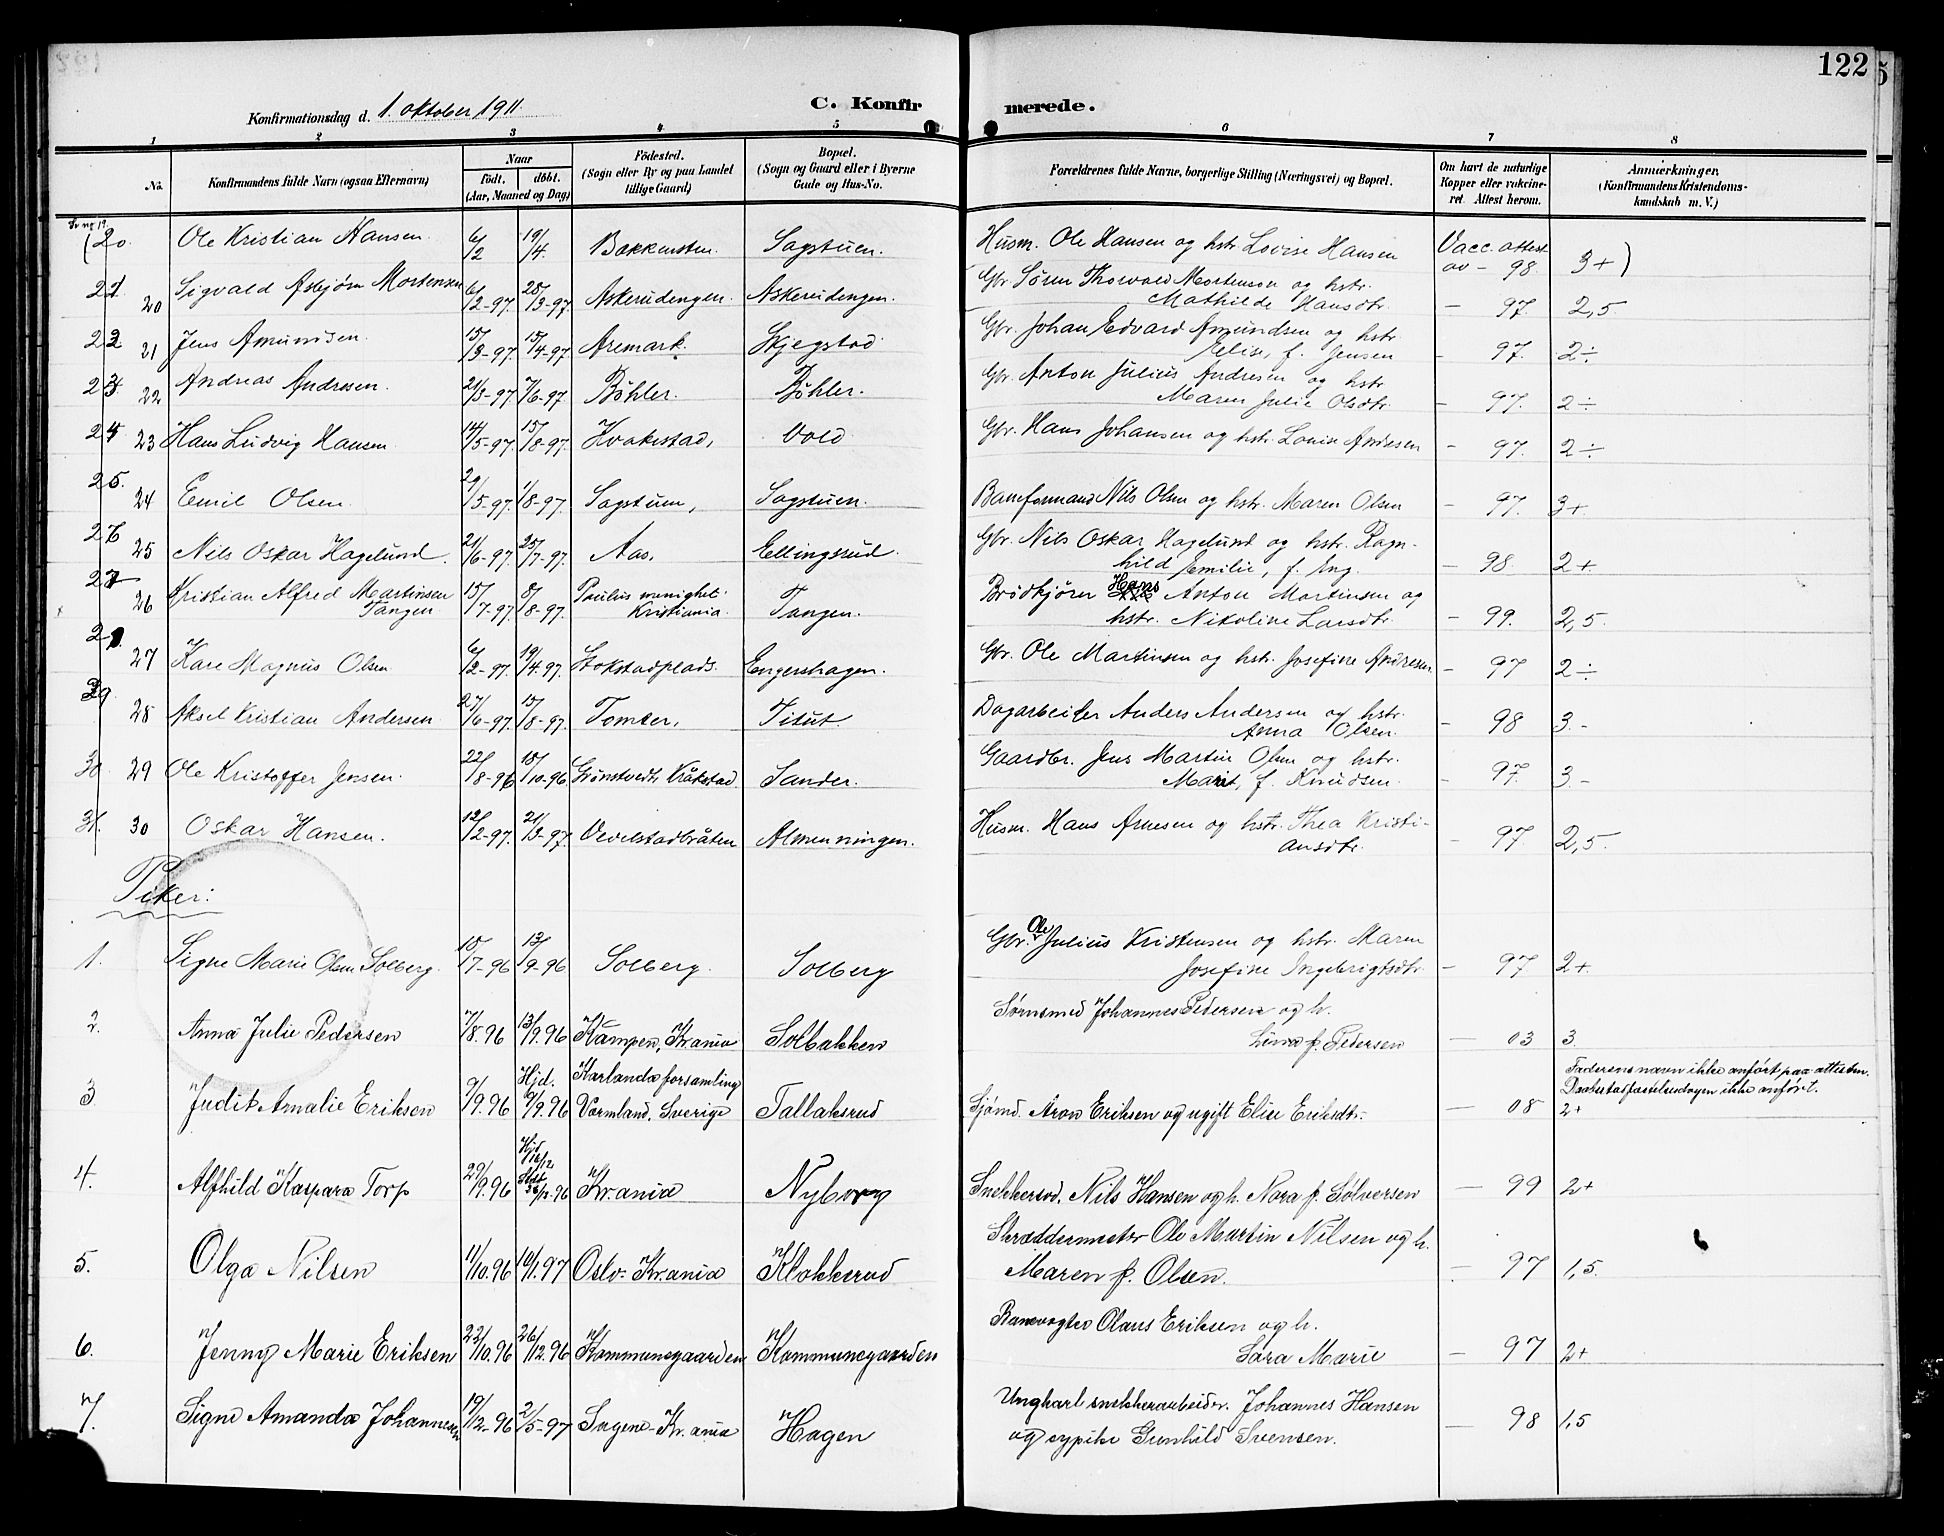 122
Konfirmationsdag d. 1. oktober 1911.
C. Konfirmerede.
1 2 3 4 5 6 7 8
No. Konfirmandens fulde Navn (ogsaa Efternavn) Naar Födt. döbt. (Aar, Maaned og Dag) Födested. (Sogn eller By og paa Landet tillige Gaard) Bopæl. (Sogn og Gaard eller i Byerne Gade og Hus-No. Forældrenes fulde Navne, borgerlige Stilling (Næringsvei) og Bopæl. Om havt de naturlige Kopper eller vakcineret. Attest herom. Anmærkninger. (Konfirmandens Kristendomskundskab m. V.)
(20. Ole Kristian Hansen. 6/2 19/4. Bakkensten. Sagstuen. Husm. Ole Hansen og hstr. Lovise Hansen Vacc. attest av - 98. 3+)
21 20 Sigvald Asbjørn Mortensen 6/2-97. 28/3-97. Askerudengen. Askerudengen. Gbr. Søren Thorvald Mortensen og hstr.
Mathilde Hansdtr. - 97. 2,5.
22 21 Jens Amundsen. 15/3-97. 15/4-97. Aremark. Skjegstad Gbr. Johan Edvard Amundsen og hstr.
Elise, f. Jensen - 97. 2÷
23. 22 Andreas Andresen. 21/3-97. 7/6-97. Bøhler. Bøhler. Gbr. Anton Julius Andresen og hstr.
Maren Julie Olsdtr. - 97. 2÷
24 23 Hans Ludvig Hansen. 14/5-97. 15/8-97. Kvakestad, Vold Gbr. Hans Johansen og hstr. Lovise Andresen - 97. 2÷
25. 24 Emil Olsen. 29/5-97. 1/8-97. Sagstuen, Sagstuen. Baneformand Nils Olsen og hstr. Maren Olsen - 97. 3+.
26 25 Nils Oskar Hagelund. 21/6-97. 25/7-97. Aas. Ellingsrud. Gbr. Nils Oskar Hagelund og hstr. Ragn-
hild Emilie, f. Ing. - 98. 2+.
27 26 Kristian Alfred Martinsen Tangen. 15/7-97. 8/8-97. Paulus menighet. Kristiania. Tangen. Brødkjører Hans Anton Martinsen og
hstr. Nikoline Larsdtr. - 99. 2,5.
27 Kare Magnus Olsen 6/2-97. 19/4.97. Stokstadplads. Engershagen. Gbr. Ole Martinsen og hstr. Josefine Andresen - 97 2÷
29. 28 Aksel Kristian Andersen. 27/6-97. 15/8-97. Tomter. Titut. Dagarbeider Anders Andersen og hstr.
Anna Olsen. - 98 3.-
30 29 Ole Kristoffer Jensen. 22/8-96 18/10.96 Grønstvedt, Kråkstad Sander. Gaardbr. Jens Martin Olsen og hstr.
Marit, f. Knudsen. - 97. 3.-
31. 30 Oskar Hansen. 12/2-97. 21/3-97. Vevelstadbråten Almenningen. Husm. Hans Arnesen og hstr. Thea Kristi-
ansdtr. - 97. 2,5.
Piker:
1. Signe Marie Olsen Solberg. 15/7-96 13/9-96 Solberg. Solberg Gbr. Ole Julius Kristensen og hstr. Maren
Josefine Ingebrigtsdtr. - 97 2+.
2. Anna Julie Pedersen 7/8.96 13/9.96 Kampen, Kr.ania Solbakken Johannes Pedersen og h.
Lina f. Pedersen - 03 3.
3. Judit Amalie Eriksen 9/9.96 Hjd. 9/9.96 Karlanda forsamling Varmland, Sverige Tallaksrud Sjømd. Aron Eriksen og ugift Elise Eriksdtr. - 08 Faderens navn ikke anført paa attesten.
Daabsstadfæstelsesdagen ikke anført.
2+
4. Alfhild Kaspara Torp 29/9.96 Kr.ania Nyborg Snekkersv. Nils Hansen og h. Nora f. Sølversen - 99 2+
5. Olga Nilsen 11/10.96 10/1.97 Oslo. Kr.ania Klokkerud Skræddermester Ole Martin Nilsen og h.
Maren f. Olsen. - 97 1,5.
6. Jenny Marie Eriksen 22/10.96 26/12.96 Kommunegaarden Kommunegaarden Banevogter Olaus Eriksen og h.
Sara Marie - 97 2+
7. Signe Amanda Johannesen 19/12.96 2/5-97 Sagene - Kr.ania Hagen Ungkarl snekkerarbeider. Johannes Hansen
og sypike Gunhild Svensen. - 98 1,5